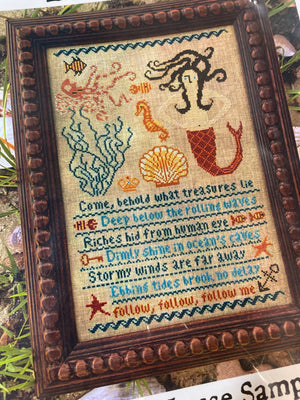 Come, behold what treasures lie
Deep below the rolling waves
Riches hid from human eye
Dimly shine in ocean's caves
Stormy winds are far away
Ebbing tides brook no delay
follow, follow, follow me